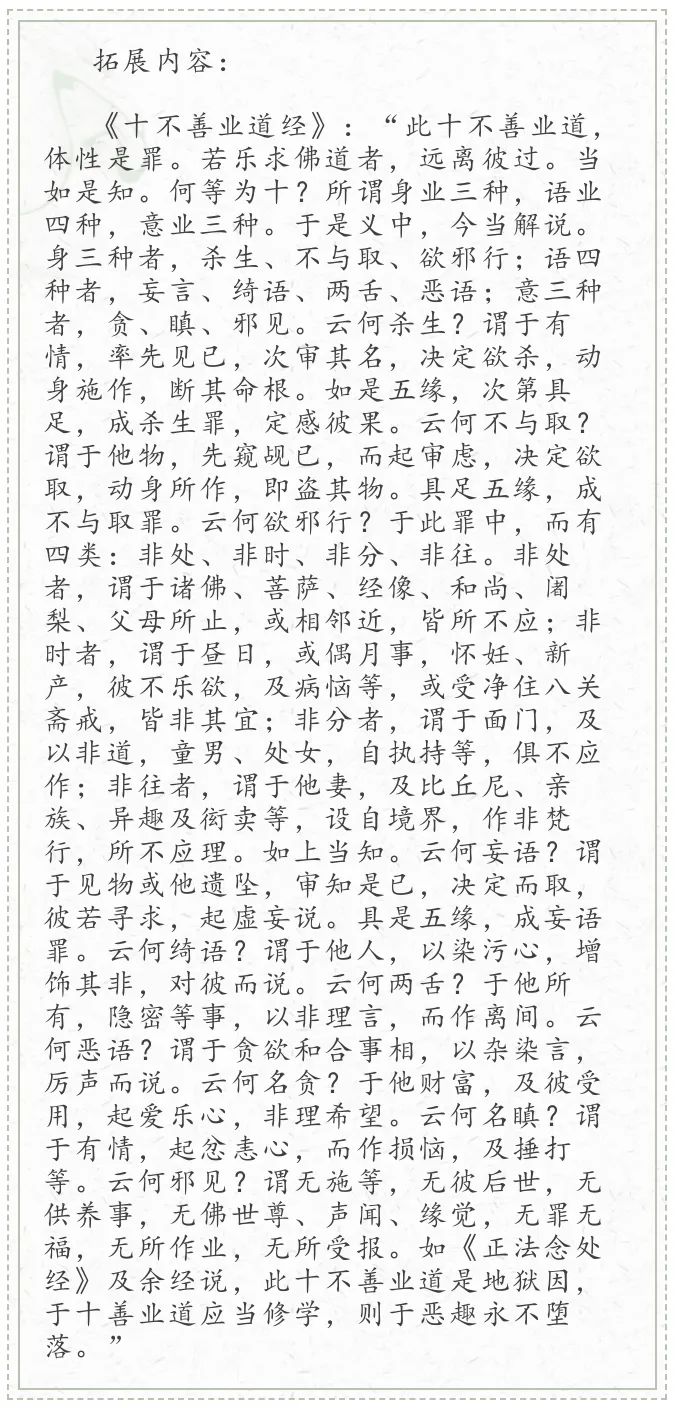 拓展内容：
《十不善业道经》：“此十不善业道，
体性是罪。若乐求佛道者，远离彼过。当
如是知。何等为十？所谓身业三种，语业
四种，意业三种。于是义中，今当解说。
身三种者，杀生、不与取、欲邪行；语四
种者，妄言、绮语、两舌、恶语；意三种
者，贪、瞋、邪见。云何杀生？谓于有
情，率先见已，次审其名，决定欲杀，动
身施作，断其命根。如是五缘，次第具
足，成杀生罪，定感彼果。云何不与取？
谓于他物，先窥觇已，而起审虑，决定欲
取，动身所作，即盗其物。具足五缘，成
不与取罪。云何欲邪行？于此罪中，而有
四类：非处、非时、非分、非往。非处
者，谓于诸佛、菩萨、经像、和尚、阇
梨、父母所止，或相邻近，皆所不应；非
时者，谓于昼日，或偶月事，怀妊、新
产，彼不乐欲，及病恼等，或受净住八关
斋戒，皆非其宜；非分者，谓于面门，及
以非道，童男、处女，自执持等，俱不应
作；非往者，谓于他妻，及比丘尼、亲
族、异趣及衒卖等，设自境界，作非梵
行，所不应理。如上当知。云何妄语？谓
于见物或他遗坠，审知是已，决定而取，
彼若寻求，起虚妄说。具是五缘，成妄语
罪。云何绮语？谓于他人，以染污心，增
饰其非，对彼而说。云何两舌？于他所
有，隐密等事，以非理言，而作离间。云
何恶语？谓于贪欲和合事相，以杂染言，
厉声而说。云何名贪？于他财富，及彼受
用，起爱乐心，非理希望。云何名瞋？谓
于有情，起忿恚心，而作损恼，及捶打
等。云何邪见？谓无施等，无彼后世，无
供养事，无佛世尊、声闻、缘觉，无罪无
福，无所作业，无所受报。如《正法念处
经》及余经说，此十不善业道是地狱因，
于十善业道应当修学，则于恶趣永不堕
落。”